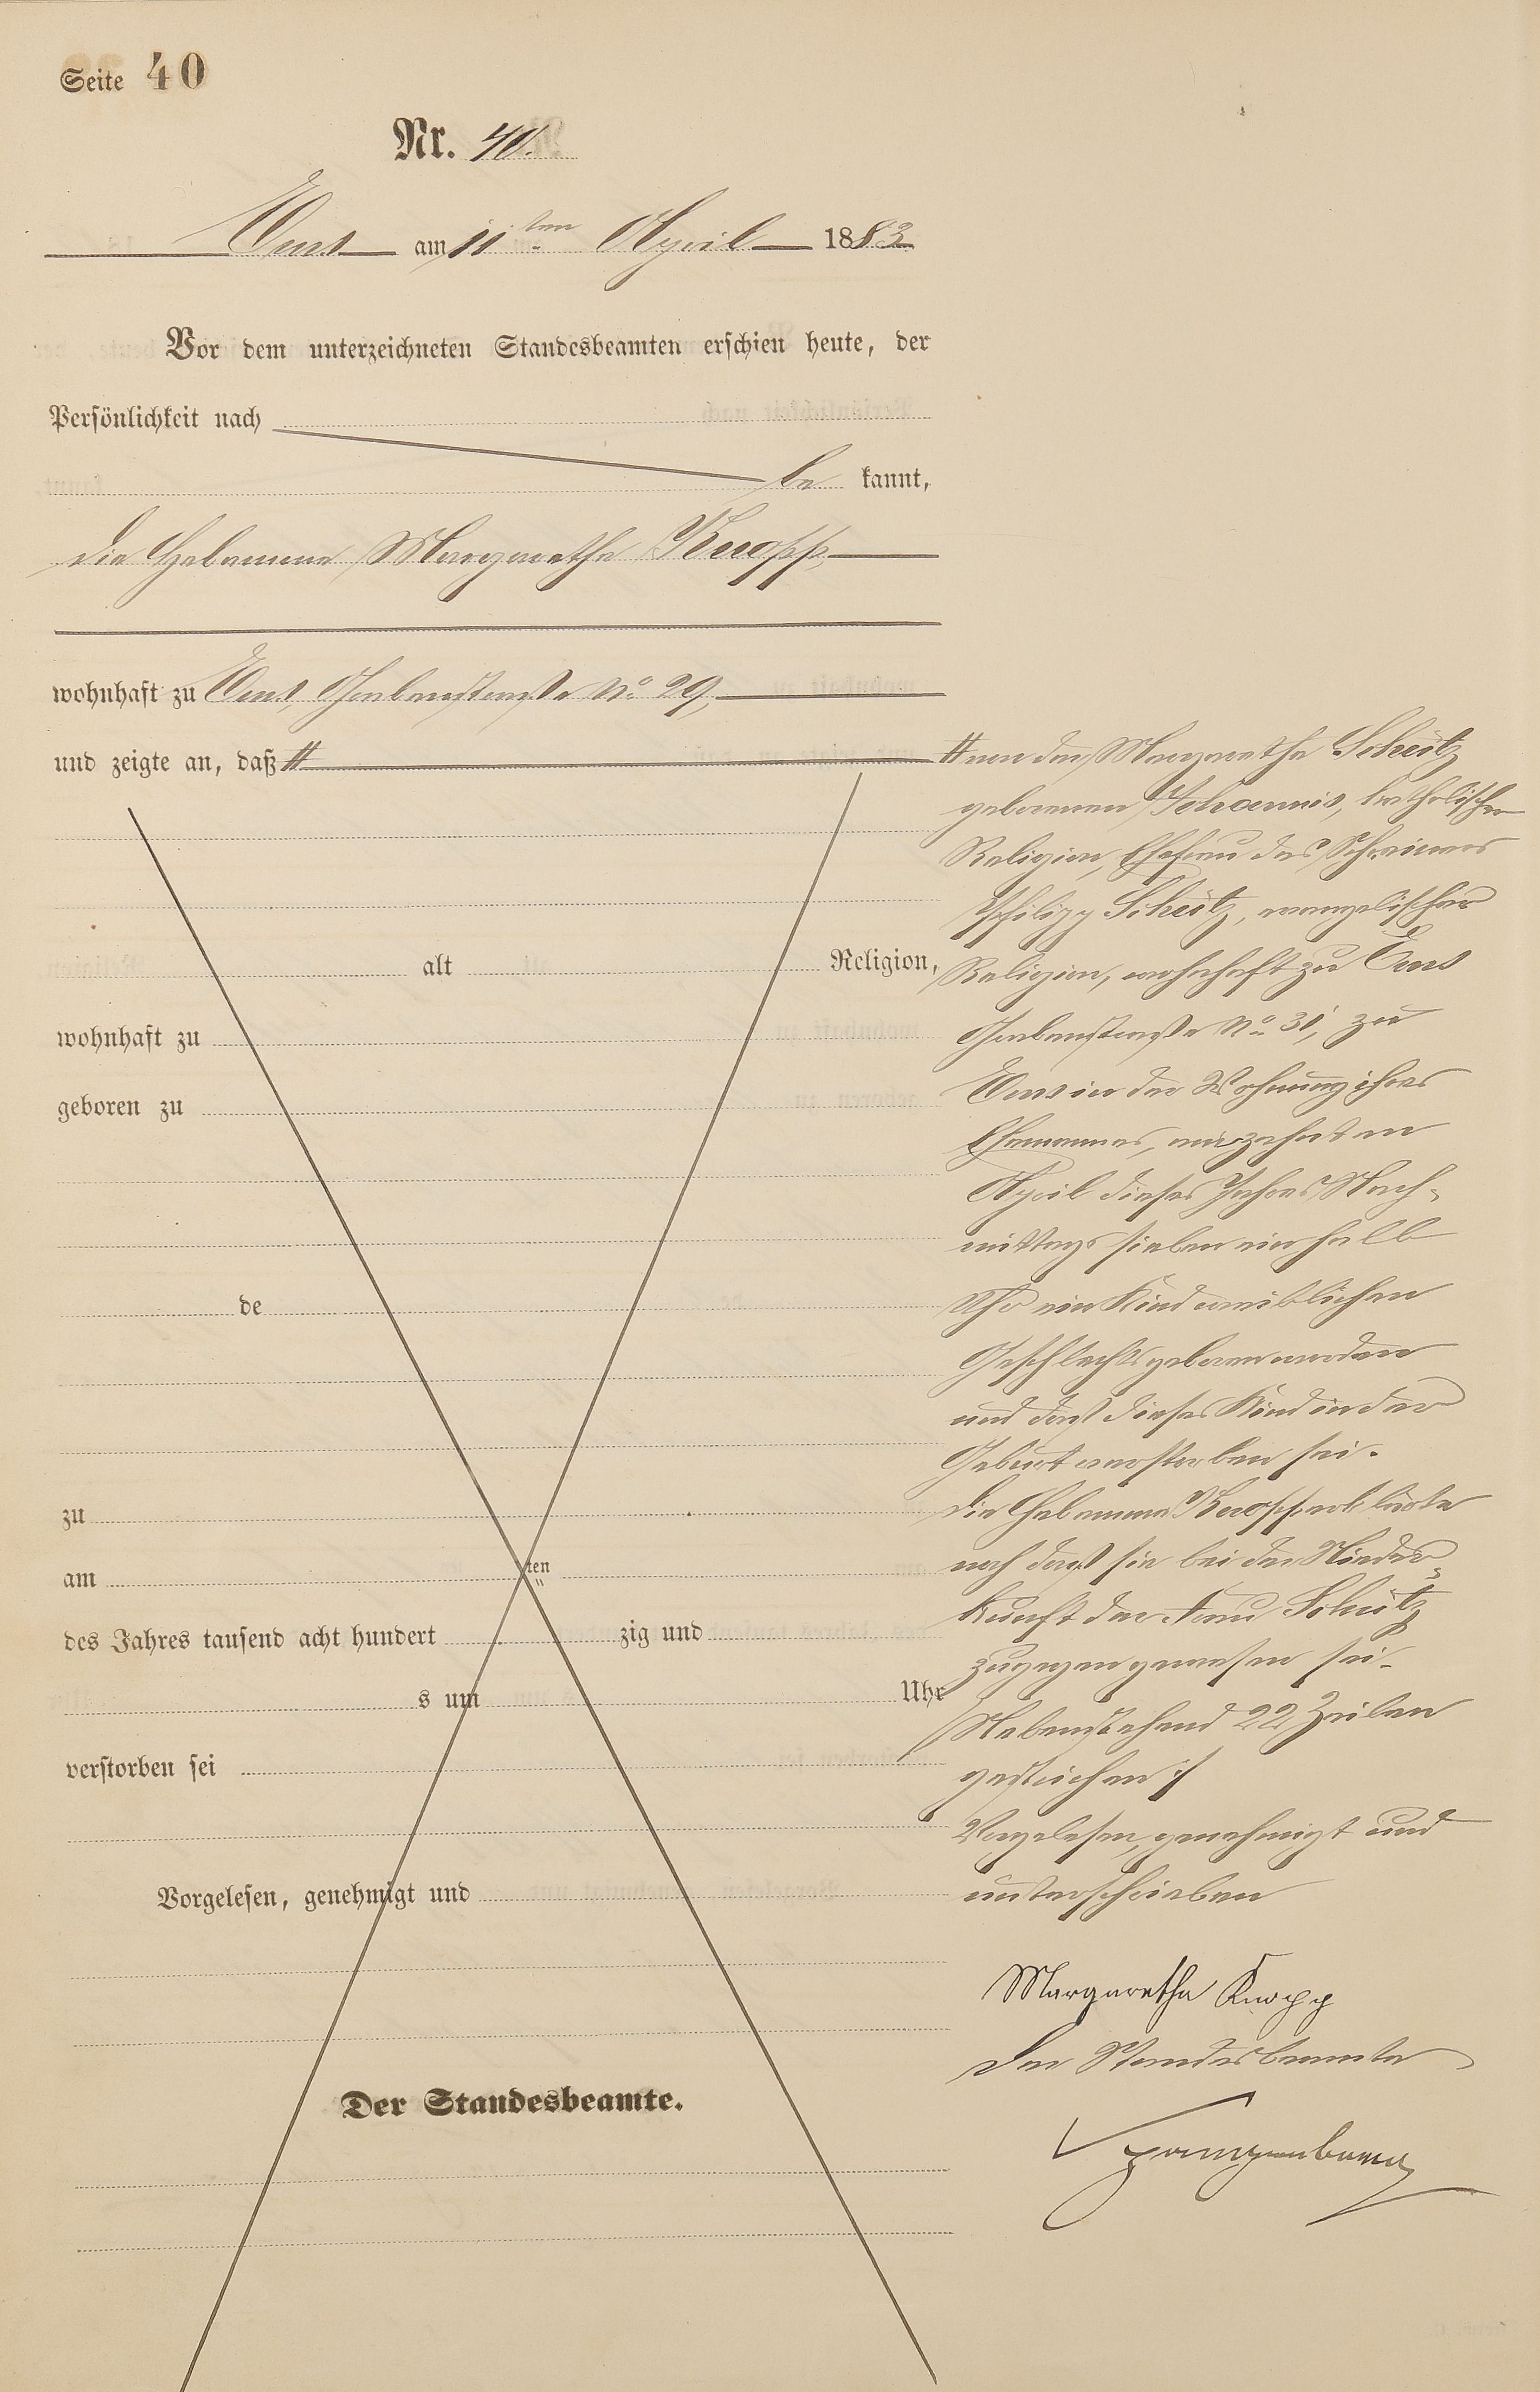 Seite 40
Nr. 40.
Ems am 11ten April 1883
Vor dem unterzeichneten Standesbeamten erschien heute, der
Persönlichkeit nach
be kannt,
die Hebamme Margarethe Knopp,
wohnhaft zu Ems, Grabenstraße No 29,
und zeigte an, daß #
# von der Margarethe Schütz
geborenen Johannis, katholischer
Religion, Ehefrau des Schreiners
Philipp Schütz, evangelischer
alt Religion,
Religion, wohnhaft zu Ems
wohnhaft zu
Grabenstraße No 31, zu
geboren zu
Ems in der Wohnung ihres
Ehemannes, am zehnten
April dieses Jahres Nach-
mittags sieben ein halb
de
Uhr ein Kind weiblichen
Geschlechts geboren worden
und daß dieses Kind in der
Geburt verstorben sei.
zu
Die Hebamme Knopp erklärte
am ten
noch daß sie bei der Nieder-
kunft der Frau Schütz
des Jahres tausend acht hundert zig und
zugegen gewesen sei.
s um Uhr
Nebenstehend 22 Zeilen
verstorben sei
gestrichen
Vorgelesen, genehmigt und
Vorgelesen, genehmigt und
unterschrieben
Margarethe Knopp
Der Standesbeamte
Der Standesbeamte.
Spangenberg